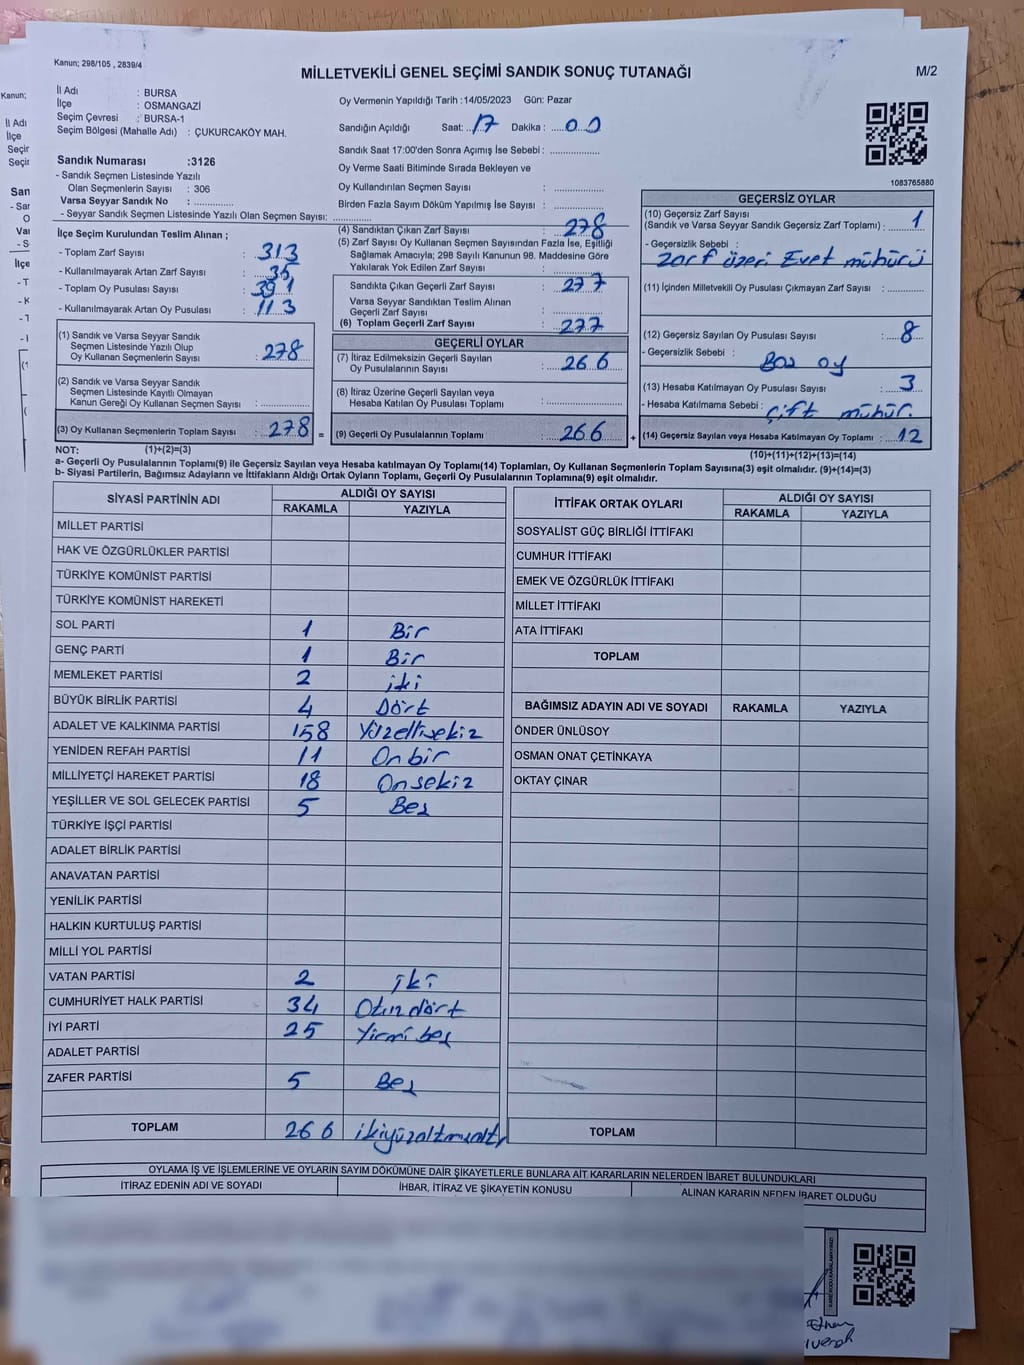 Kanun; 298/105 , 2839/4
MİLLETVEKİLİ GENEL SEÇİMİ SANDIK SONUÇ TUTANAĞI
M/2
İl Adı : BURSA
İlçe : OSMANGAZİ
Seçim Çevresi : BURSA-1
Seçim Bölgesi (Mahalle Adı) : ÇUKURCAKÖY MAH.
Sandık Numarası :3126
- Sandık Seçmen Listesinde Yazılı
Olan Seçmenlerin Sayısı : 306
Varsa Seyyar Sandık No : ............
- Seyyar Sandık Seçmen Listesinde Yazılı Olan Seçmen Sayısı: ............
Oy Vermenin Yapıldığı Tarih :14/05/2023 Gün: Pazar
Sandığın Açıldığı Saat: 17 Dakika : 00
Sandık Saat 17:00'den Sonra Açımış İse Sebebi : ............
Oy Verme Saati Bitiminde Sırada Bekleyen ve
Oy Kullandırılan Seçmen Sayısı : ............
Birden Fazla Sayım Döküm Yapılmış İse Sayısı : ............
1083765880
İlçe Seçim Kurulundan Teslim Alınan ;
- Toplam Zarf Sayısı : 313
- Kullanılmayarak Artan Zarf Sayısı : 35
- Toplam Oy Pusulası Sayısı : 391
- Kullanılmayarak Artan Oy Pusulası : 113
(1) Sandık ve Varsa Seyyar Sandık
Seçmen Listesinde Yazılı Olup
Oy Kullanan Seçmenlerin Sayısı : 278
(2) Sandık ve Varsa Seyyar Sandık
Seçmen Listesinde Kayıtlı Olmayan
Kanun Gereği Oy Kullanan Seçmen Sayısı : ............
(3) Oy Kullanan Seçmenlerin Toplam Sayısı : 278 =
(1)+(2)=(3)
(4) Sandıktan Çıkan Zarf Sayısı : 278
(5) Zarf Sayısı Oy Kullanan Seçmen Sayısından Fazla İse, Eşitliği
Sağlamak Amacıyla; 298 Sayılı Kanunun 98. Maddesine Göre
Yakılarak Yok Edilen Zarf Sayısı : ............
Sandıkta Çıkan Geçerli Zarf Sayısı : 277
Varsa Seyyar Sandıktan Teslim Alınan
Geçerli Zarf Sayısı : ............
(6) Toplam Geçerli Zarf Sayısı : 277
GEÇERLİ OYLAR
(7) İtiraz Edilmeksizin Geçerli Sayılan
Oy Pusulalarının Sayısı : 266
(8) İtiraz Üzerine Geçerli Sayılan veya
Hesaba Katılan Oy Pusulası Toplamı : ............
(9) Geçerli Oy Pusulalarının Toplamı : 266 +
GEÇERSİZ OYLAR
(10) Geçersiz Zarf Sayısı
(Sandık ve Varsa Seyyar Sandık Geçersiz Zarf Toplamı) : 1
- Geçersizlik Sebebi :
Zarf üzeri Evet mühürü
(11) İçinden Milletvekili Oy Pusulası Çıkmayan Zarf Sayısı : ............
(12) Geçersiz Sayılan Oy Pusulası Sayısı : 8
- Geçersizlik Sebebi :
Boş oy
(13) Hesaba Katılmayan Oy Pusulası Sayısı : 3
- Hesaba Katılmama Sebebi : Çift mühür.
(14) Geçersiz Sayılan veya Hesaba Katılmayan Oy Toplamı : 12
(10)+(11)+(12)+(13)=(14)
NOT:
a- Geçerli Oy Pusulalarının Toplamı(9) ile Geçersiz Sayılan veya Hesaba katılmayan Oy Toplamı(14) Toplamları, Oy Kullanan Seçmenlerin Toplam Sayısına(3) eşit olmalıdır. (9)+(14)=(3)
b- Siyasi Partilerin, Bağımsız Adayların ve İttifakların Aldığı Ortak Oyların Toplamı, Geçerli Oy Pusulalarının Toplamına(9) eşit olmalıdır.
SİYASİ PARTİNİN ADI ALDIĞI OY SAYISI
RAKAMLA YAZIYLA
MİLLET PARTİSİ
HAK VE ÖZGÜRLÜKLER PARTİSİ
TÜRKİYE KOMÜNİST PARTİSİ
TÜRKİYE KOMÜNİST HAREKETİ
SOL PARTİ 1 Bir
GENÇ PARTİ 1 Bir
MEMLEKET PARTİSİ 2 iki
BÜYÜK BİRLİK PARTİSİ 4 Dört
ADALET VE KALKINMA PARTİSİ 158 Yüzellisekiz
YENİDEN REFAH PARTİSİ 11 Onbir
MİLLİYETÇİ HAREKET PARTİSİ 18 Onsekiz
YEŞİLLER VE SOL GELECEK PARTİSİ 5 Beş
TÜRKİYE İŞÇİ PARTİSİ
ADALET BİRLİK PARTİSİ
ANAVATAN PARTİSİ
YENİLİK PARTİSİ
HALKIN KURTULUŞ PARTİSİ
MİLLİ YOL PARTİSİ
VATAN PARTİSİ 2 iki
CUMHURİYET HALK PARTİSİ 34 Otuzdört
İYİ PARTİ 25 Yirmi beş
ADALET PARTİSİ
ZAFER PARTİSİ 5 Beş
TOPLAM 266 ikiyüzaltmışaltı
İTTİFAK ORTAK OYLARI ALDIĞI OY SAYISI
RAKAMLA YAZIYLA
SOSYALİST GÜÇ BİRLİĞİ İTTİFAKI
CUMHUR İTTİFAKI
EMEK VE ÖZGÜRLÜK İTTİFAKI
MİLLET İTTİFAKI
ATA İTTİFAKI
TOPLAM
BAĞIMSIZ ADAYIN ADI VE SOYADI RAKAMLA YAZIYLA
ÖNDER ÜNLÜSOY
OSMAN ONAT ÇETİNKAYA
OKTAY ÇINAR
TOPLAM
OYLAMA İŞ VE İŞLEMLERİNE VE OYLARIN SAYIM DÖKÜMÜNE DAİR ŞİKAYETLERLE BUNLARA AİT KARARLARIN NELERDEN İBARET BULUNDUKLARI
İTİRAZ EDENİN ADI VE SOYADI İHBAR, İTİRAZ VE ŞİKAYETİN KONUSU ALINAN KARARIN NEDEN İBARET OLDUĞU